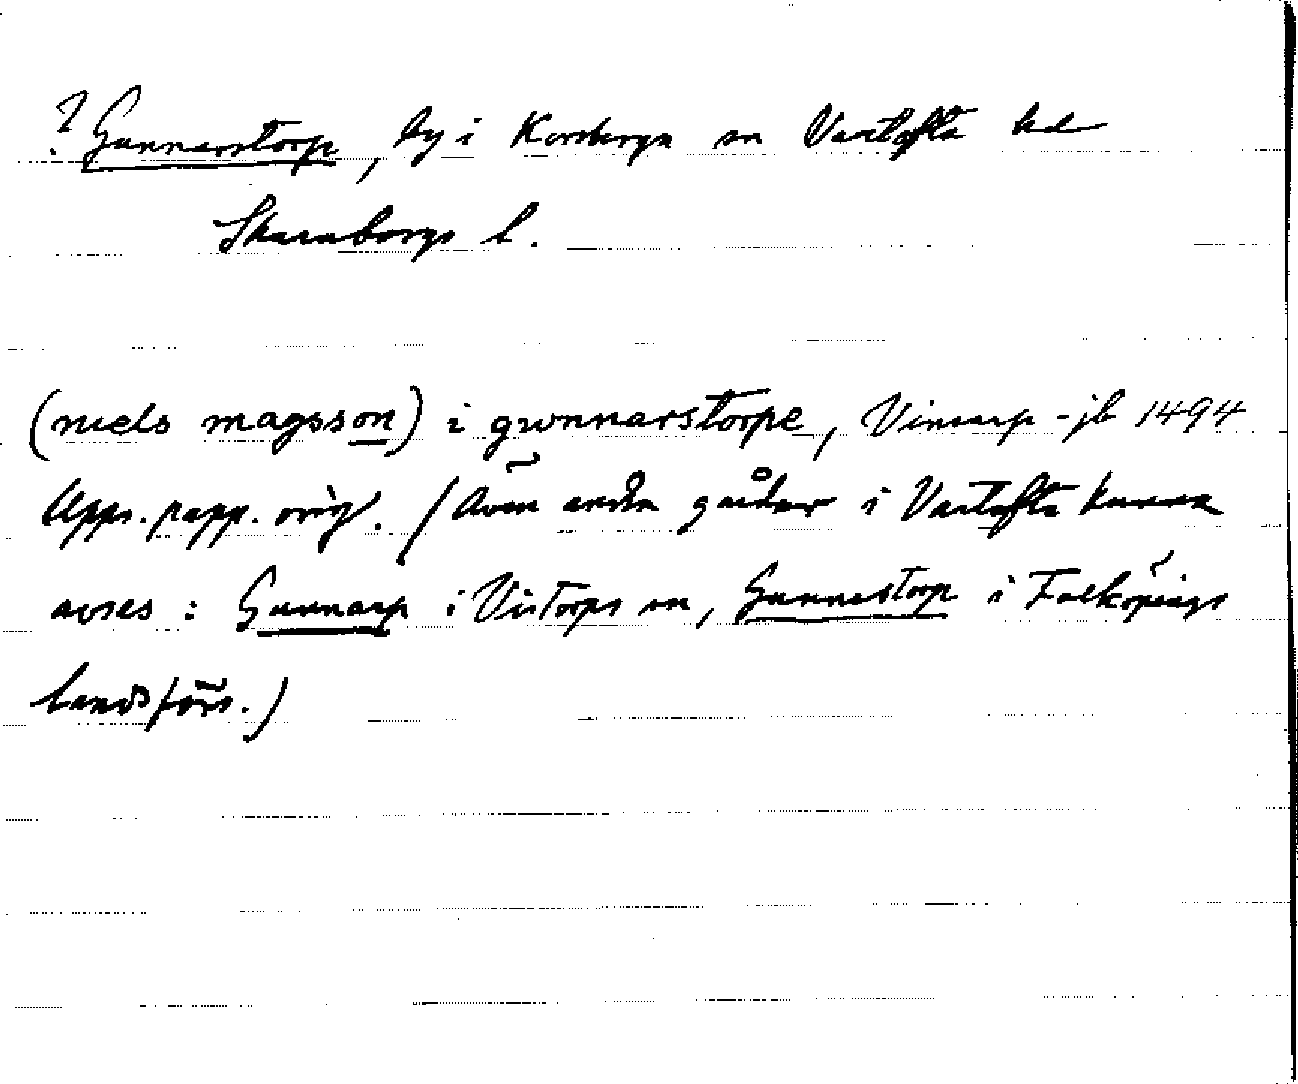 ? Gunnarstorp, by i Korsberga sn Vartofta hd
Skaraborgs l.
(niels magsson) i gwnnarstorpe, Vinsarp-jb 1494
Upps. papp. orig. (Även andra gårdar i Vartofta kunna
avses: Gunnarp i Vistorps sn, Gunnestorp i Falköpings
landsförs.)